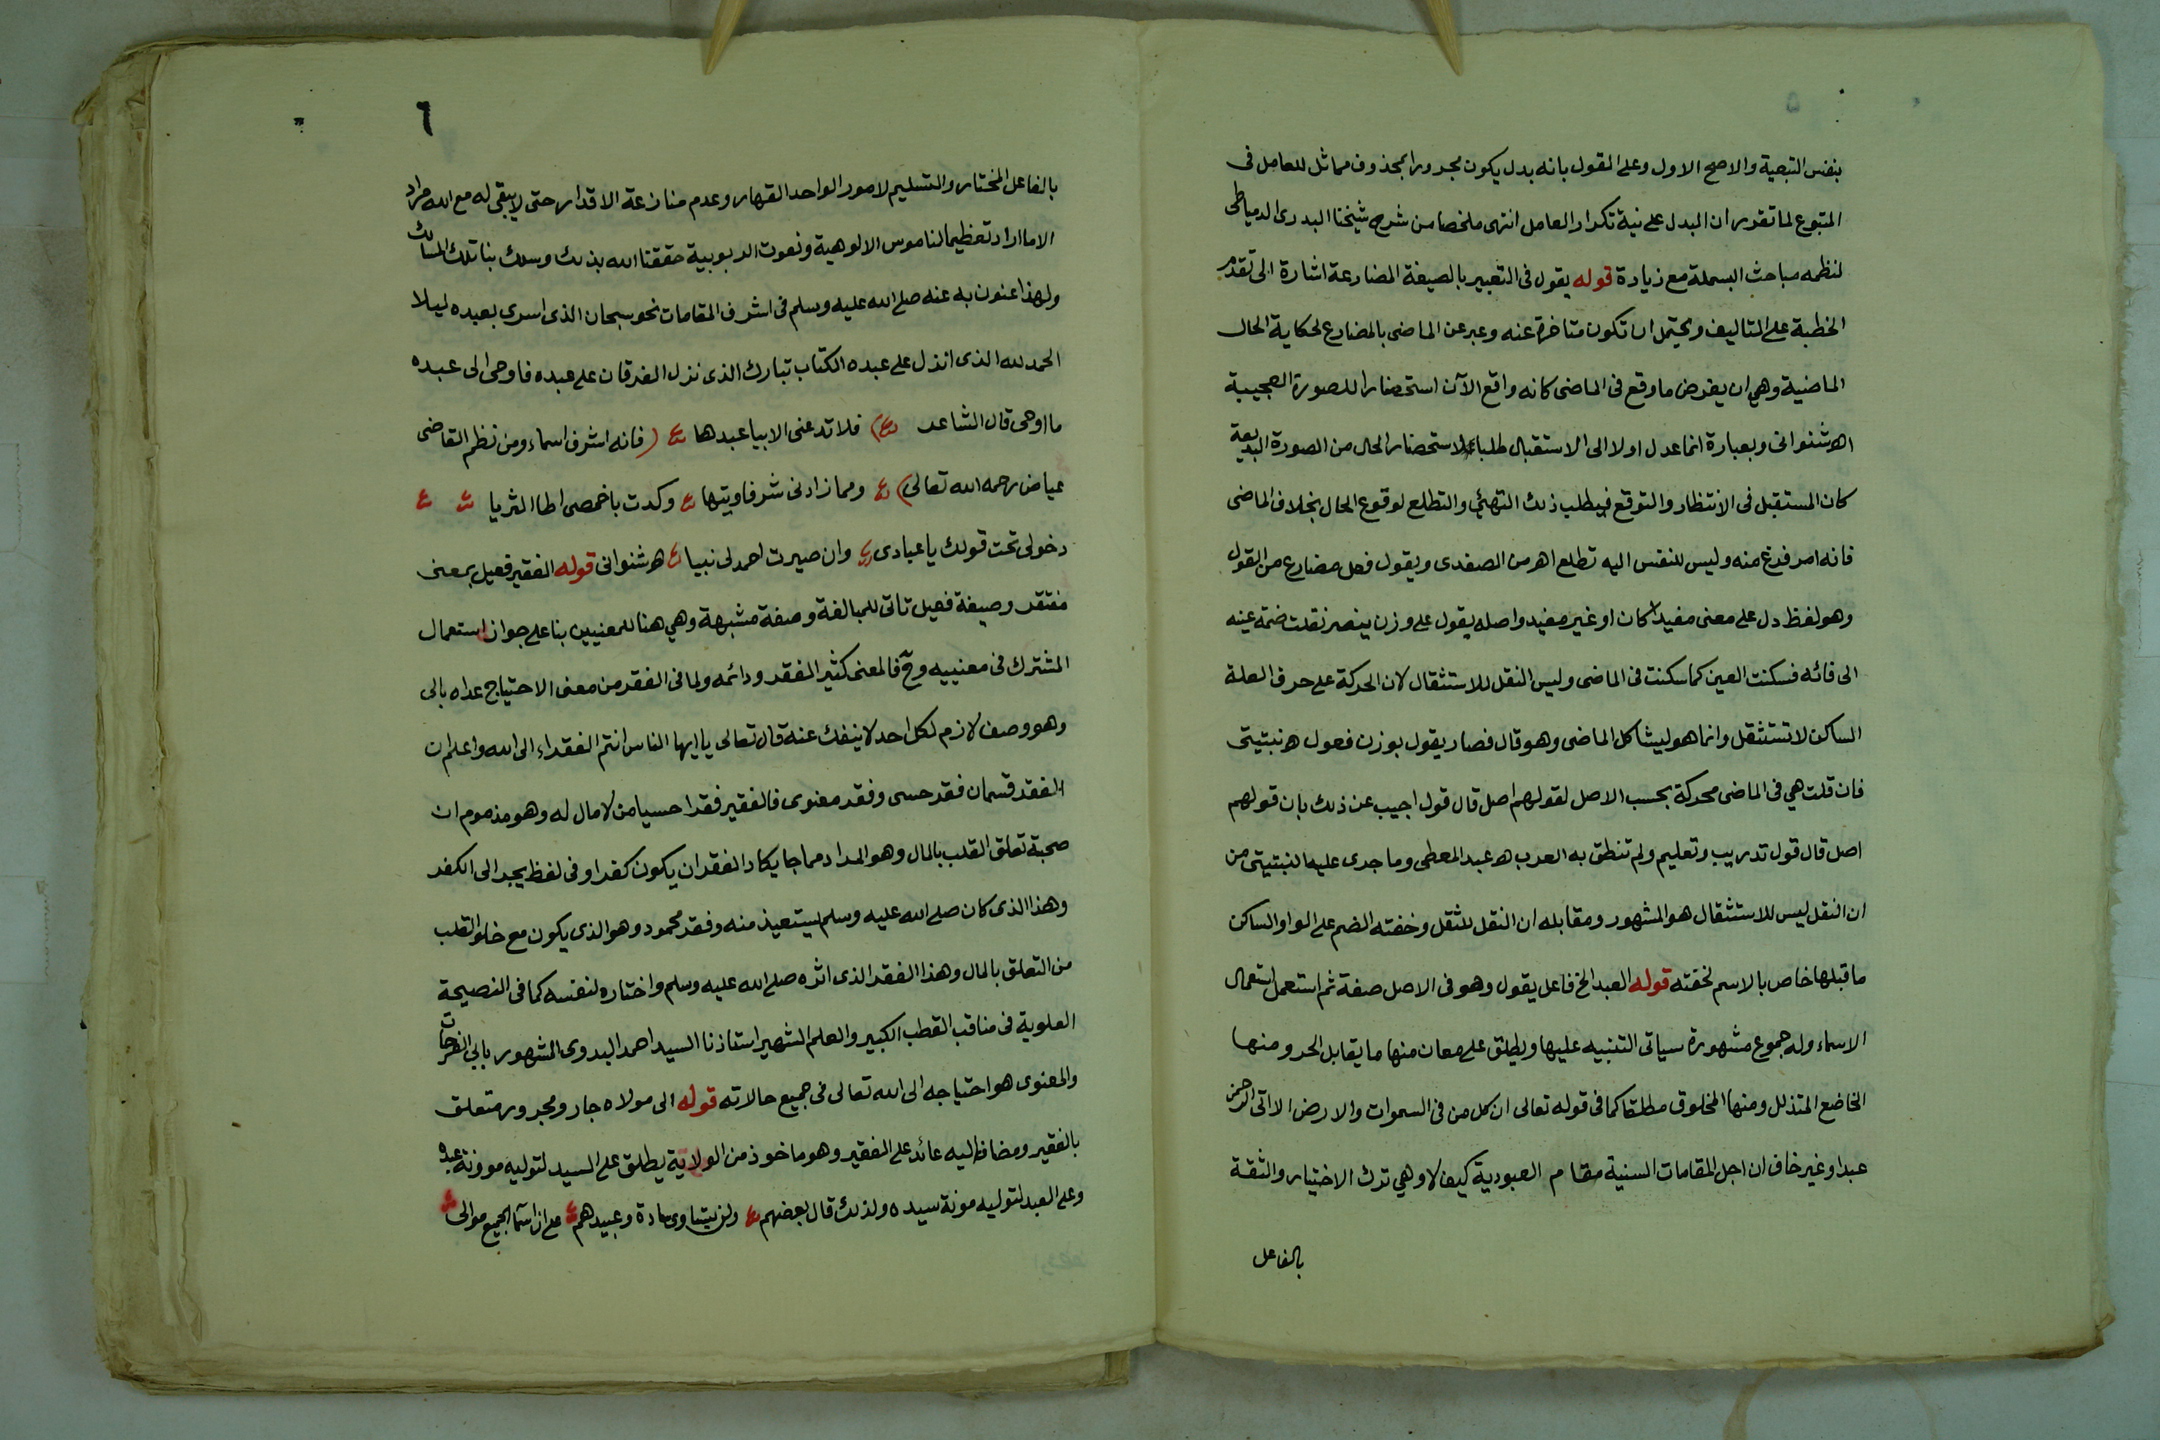 بنفس التبعية والاصح الاول وعلى القول بانه بدل يكون مجرورا بمحذوف مماثل للعامل فى
المتبوع لما تقرر ان البدل على نية تكرار العامل انتهى ملخصا من شرح شيخنا البدرى الدمياطى
لنظمه مباحث البسملة مع زيادة قوله يقول فى التعبير بالصيغة المضارعة اشارة الى تقدم
الخطبة على التاليف ويحتمل ان تكون متاخرة عنه وعبر عن الماضى بالمضارع لحكاية الحال
الماضية وهى ان يفرض ما وقع فى الماضى كانه واقع الآن استحضارا للصورة العجيبة
اهـ شنوانى وبعبارة انما عدل اولا الى الاستقبال طلبا لاستحضار الحال من الصورة البديعة
كان المستقبل فى الانتظار والتوقع فيطلب ذلك التهيئ والتطلع لوقوع الحال بخلاف الماضى
فانه امر فرغ منه وليس للنفس اليه تطلع اهـ من الصفدى ويقول فعل مضارع من القول
وهو لفظ دل على معنى مفيدا كان او غير مفيد واصله يقول على وزن ينصر نقلت ضمة عينه
الى فائه فسكنت العين كما سكنت فى الماضى وليس النقل للاستثقال لان الحركة على حرف العلة
الساكن لا تستثقل وانما هو ليشاكل الماضى وهو قال فصار يقول بوزن فعول هـ نبتيتى
فان قلت هى فى الماضى محركة بحسب الاصل لقولهم اصل قال قول اجيب عن ذلك بان قولهم
اصل قال قول تدريب وتعليم ولم تنطق به العرب هـ عبد المعطى وما جرى عليه النبتيتى من
ان النقل ليس للاستثقال هو المشهور ومقابله ان النقل للثقل وخفته الضم على الواو الساكن
ما قبلها خاص بالاسم لخفته قوله العبد الخ فاعل يقول وهو فى الاصل صفة ثم استعمل استعمال
الاسماء وله جموع مشهورة سياتى التنبيه عليها ويطلق على معان منها ما يقابل الحر ومنها
الخاضع المتذلل ومنها المخلوق مطلقا كما فى قوله تعالى ان كل من فى السموات والارض الا اتى الرحمن
عبدا وغير خاف ان اجل المقامات السنية مقام العبودية كيف لا وهى ترك الاختيار والثقة
بالفاعل
٦
بالفاعل المختار والتسليم لامور الواحد القهار وعدم منازعة الاقدار حتى لا يبقى له مع الله مراد
الا ما اراد تعظيما لناموس الالوهية ونعوت الربوبية حققنا الله بذلك وسلك بنا تلك المسالك
ولهذا عنون به عنه صلى الله عليه وسلم فى اشرف المقامات نحو سبحان الذى اسرى بعبده ليلا
الحمد لله الذى انزل على عبده الكتاب تبارك الذى نزل الفرقان على عبده فاوحى الى عبده
ما اوحى قال الشاعر فلا تدعنى الا بيا عبدها فانه اشرف اسماء ومن نظم القاضى
عياض رحمه الله تعالى ومما زادنى شرفا وتيها وكدت باخمصى اطا الثريا
دخولى تحت قولك يا عبادى وان صيرت احمد لى نبيا هـ شنوانى قوله الفقير فعيل بمعنى
مفتقر وصيغة فعيل تاتى للمبالغة وصفة مشبهة وهى هنا للمعنيين بنا على جواز استعمال
المشترك فى معنييه وح فالمعنى كثير الفقر ودائمه ولما فى الفقر من معنى الاحتياج عداه بالى
وهو وصف لازم لكل احد لا ينفك عنه قال تعالى يا ايها الناس انتم الفقراء الى الله واعلم ان
الفقر قسمان فقر حسى وفقر معنوى فالفقير فقرا حسيا من لا مال له وهو مذموم ان
صحبة تعلق القلب بالمال وهو المراد مما جا يكاد الفقر ان يكون كفرا وفى لفظ يجر الى الكفر
وهذا الذى كان صلى الله عليه وسلم يستعيذ منه وفقر محمود وهو الذى يكون مع خلو القلب
من التعلق بالمال وهذا الفقر الذى اثره صلى الله عليه وسلم واختاره لنفسه كما فى النصيحة
العلوية فى مناقب القطب الكبير والعلم الشهير استاذنا السيد احمد البدوى المشهور بابى الفرحات
والمعنوى هو احتياجه الى الله تعالى فى جميع حالاته قوله الى مولاه جار ومجرور متعلق
بالفقير ومضاف اليه عائد على الفقير وهو ماخوذ من الولاية يطلق على السيد لتوليه موونة عبده
وعلى العبد لتوليه مونة سيده ولذلك قال بعضهم ولن يتساوى سادة وعبيدهم على ان اسما الجميع موالى